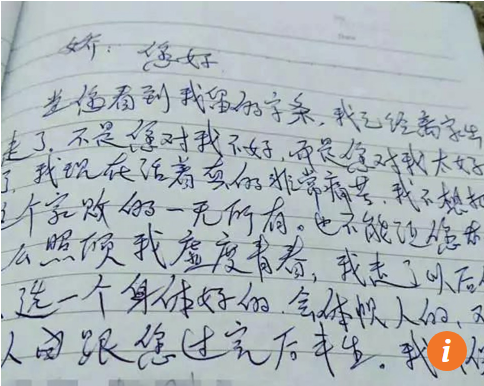 娇：您好
当您看到我留的字条，我已经离家出
走了，不是您对我不好，而是您对我太好
了，我现在活着真的非常痛苦，我不想把
这个家败的一无所有。也不能让您来
么照顾我虚度青春，我走了以后
选一个身体好的，会体贴人的，
人由跟您过完后半生。我
i